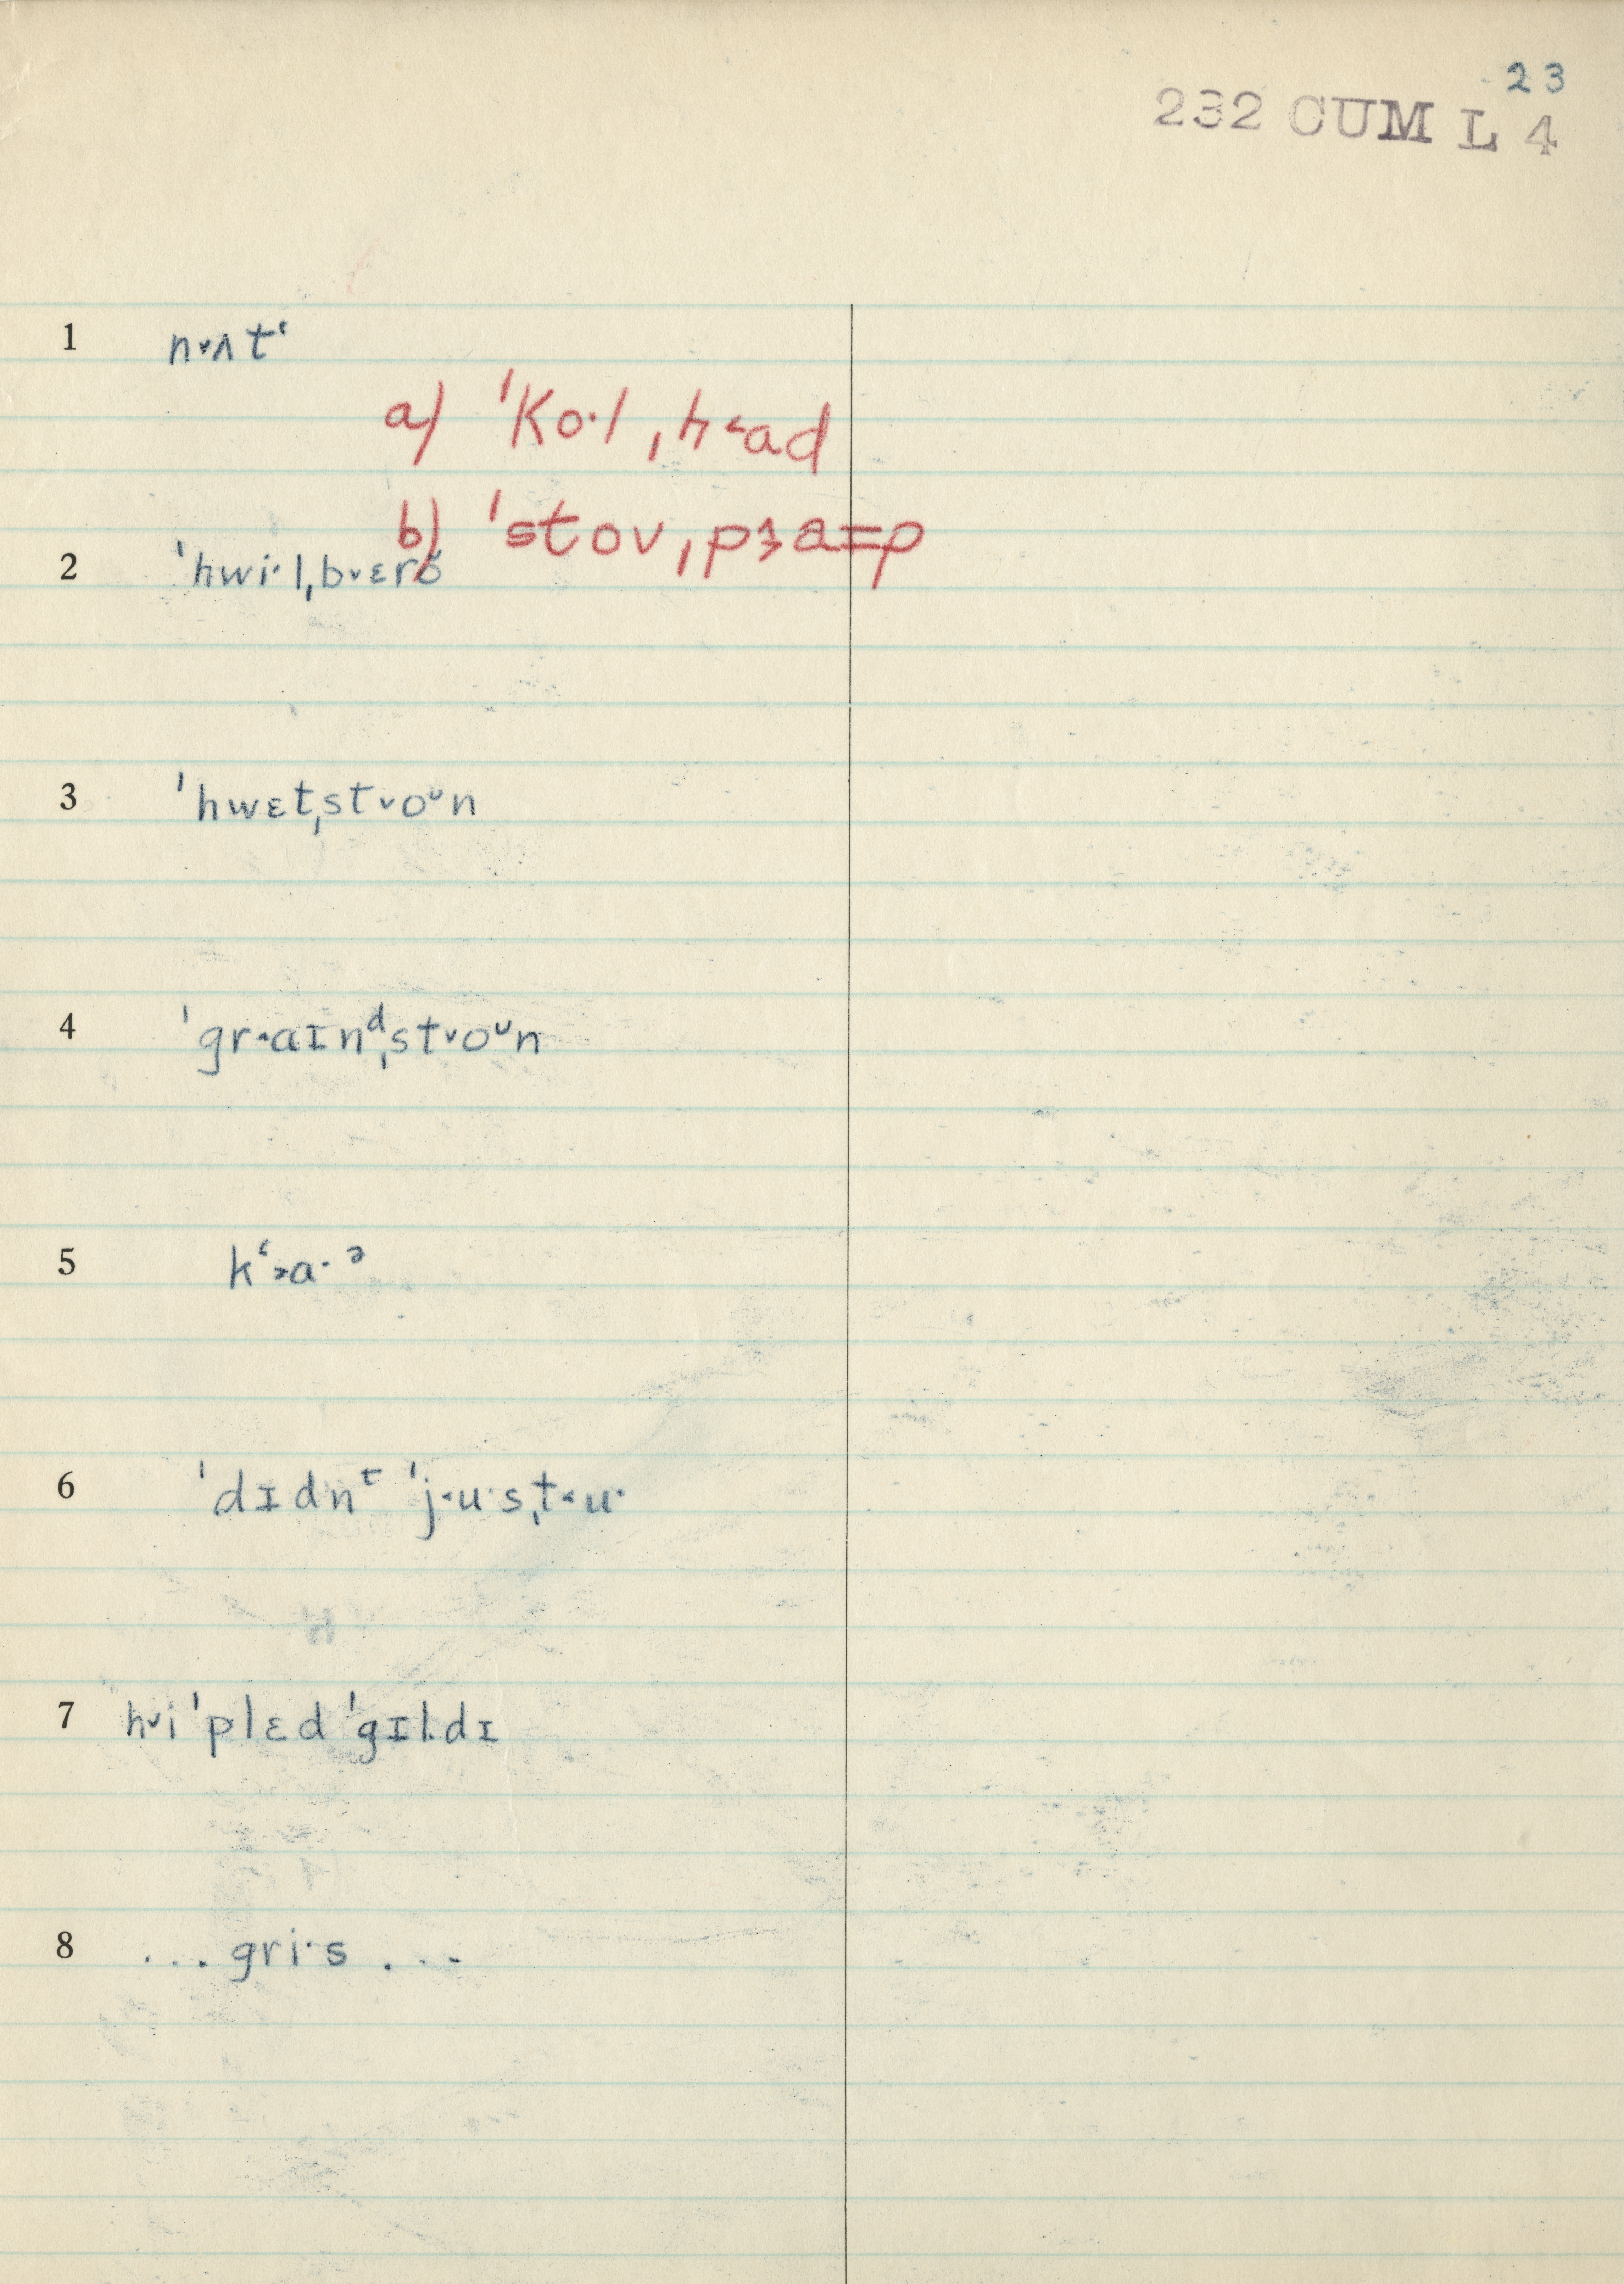 23
232 CUM L 4
1 n˅ʌtʻ
a) ˈKo·l ˌh˂ad
b) ˈstovˌpɜa=p
2 ˈhwi·lˌb˅ɛrŏ
3 ˈhwɛtˌst˅oᵁn
4 ˈgr˂aɪnᵈˌst˅oᵁn
5 kʻ˃a·ᵊ
6 ˈdɪdnᵗ ˈj˂u·sˌt˂u·
7 h˅i ˈplɛd ˈgɪl·dɪ
8 ... gri·s ...